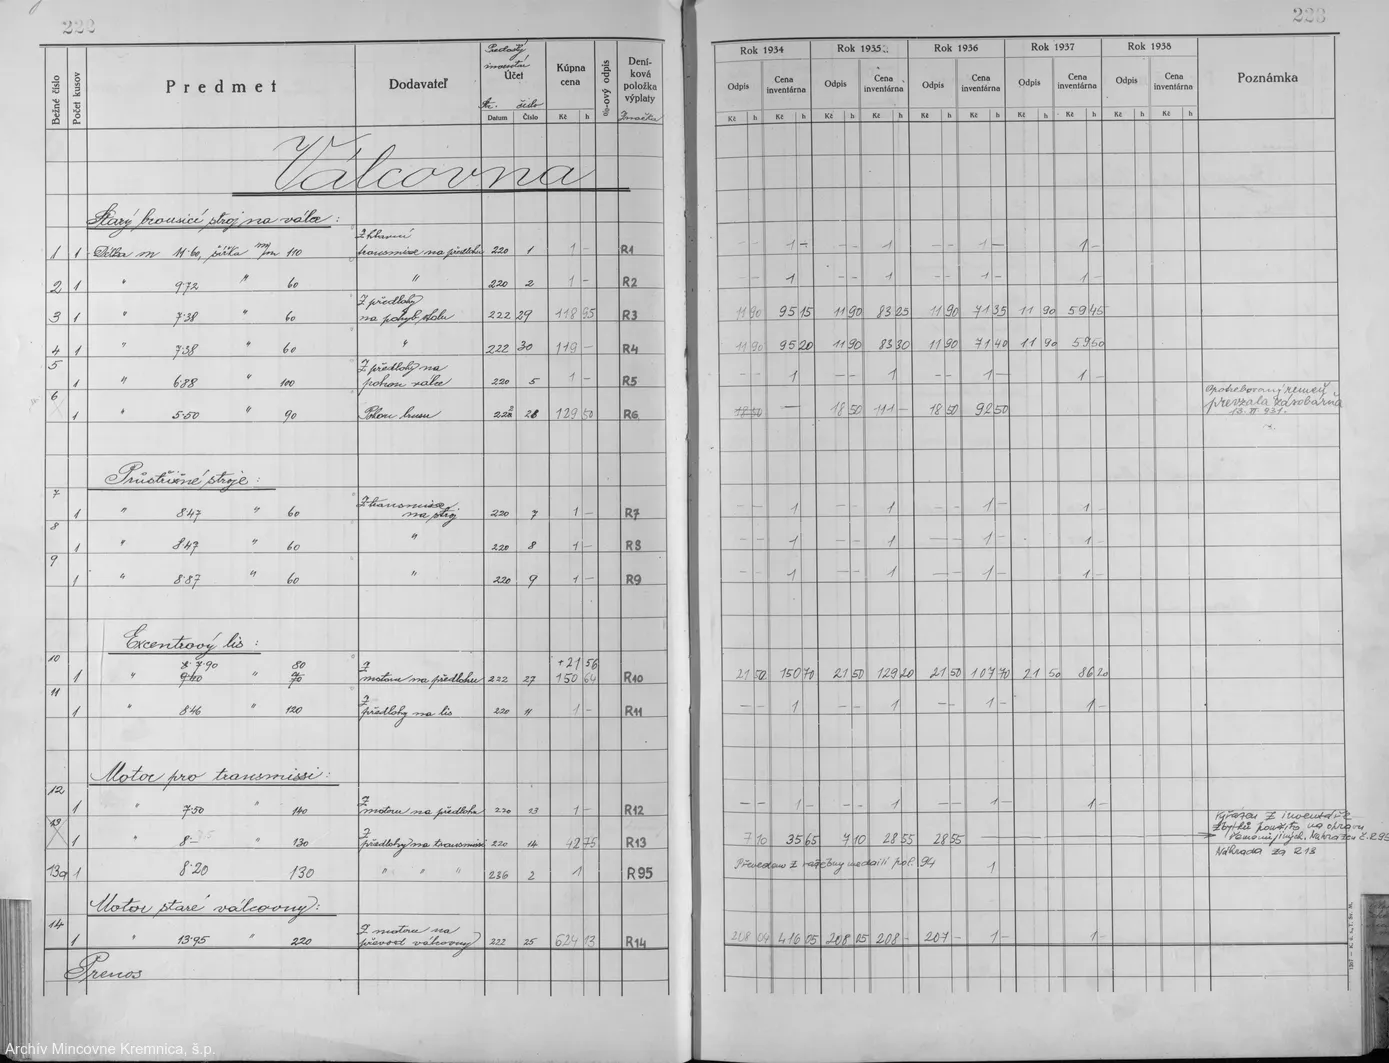 226
228
Bežné číslo
Počet kusov
Predmet
Dodavateľ
Účet
Datum
Číslo
Kúpna cena
Kč h
%-ový odpis
Deníková položka výplaty
Značka
Rok 1934 Rok 1935 Rok 1936 Rok 1937 Rok 1938
Odpis Cena inventárna Odpis Cena inventárna Odpis Cena inventárna Odpis Cena inventárna Odpis Cena inventárna
Kč h Kč h Kč h Kč h Kč h Kč h Kč h Kč h Kč h Kč h
Poznámka
Válcovna
Starý brousicí stroj na válce:
1 1 Délka m 14·60, šířka mm 110 Z hlavní transmise na předlohu 220 1 1 – R1 – – 1 – – – 1 – – 1 – 1 –
2 1 " 9·72 " 60 " 220 2 1 – R2 – – 1 – – 1 – – 1 – 1 –
3 1 " 7·38 " 60 Z předlohy na pohyb stolu 222 29 118 95 R3 11 90 95 15 11 90 83 25 11 90 71 35 11 90 59 45
4 1 " 7·38 " 60 " 222 30 119 – R4 11 90 95 20 11 90 83 30 11 90 71 40 11 90 59 50
5 1 " 6·88 " 100 Z předlohy na pohon válce 220 5 1 – R5 – – 1 – – 1 – – 1 – 1 –
6 1 " 5·50 " 90 Pohon brusu 222 28 129 50 R6 18 50 — 18 50 111 – 18 50 92 50
Opotrebovaný remeň
prevzala zásobárňa
Průstřižné stroje:
7 1 " 8·47 " 60 Z transmise na stroj 220 7 1 – R7 – – 1 – – 1 – – 1 – 1 –
8 1 " 8·47 " 60 " 220 8 1 – R8 – – 1 – – 1 – – 1 – 1 –
9 1 " 8·87 " 60 " 220 9 1 – R9 – – 1 – – 1 – – 1 – 1 –
Excentrový lis:
7·90 80 + 21 56
10 1 " 9·40 " 70 Z motoru na předlohu 222 27 150 64 R10 21 50 150 70 21 50 129 20 21 50 107 70 21 50 86 20
11 1 " 8·46 " 120 Z předlohy na lis 220 11 1 – R11 – – 1 – – 1 – – 1 – 1 –
Motor pro transmissi:
12 1 " 7·50 " 140 Z motoru na předlohu 220 13 1 – R12 – – 1 – – – 1 – – 1 – 1 –
13 1 " 8– " 130 Z předlohy na transmisi 220 14 42 75 R13 7 10 35 65 7 10 28 55 28 55
Vyřazen z inventáře
Zbytků použito na opravu
Nahrazen č. R95
13a 1 8·20 130 " " " 236 2 1 R95 Převedeno z ražebny medailí pol. 94 1
Náhrada za 213
Motor staré válcovny:
14 1 " 13·95 " 220 Z motoru na převod válcovny 222 25 624 13 R14 208 04 416 05 208 05 208 – 207 – 1 – 1 –
Prenos
Archív Mincovne Kremnica, š.p.